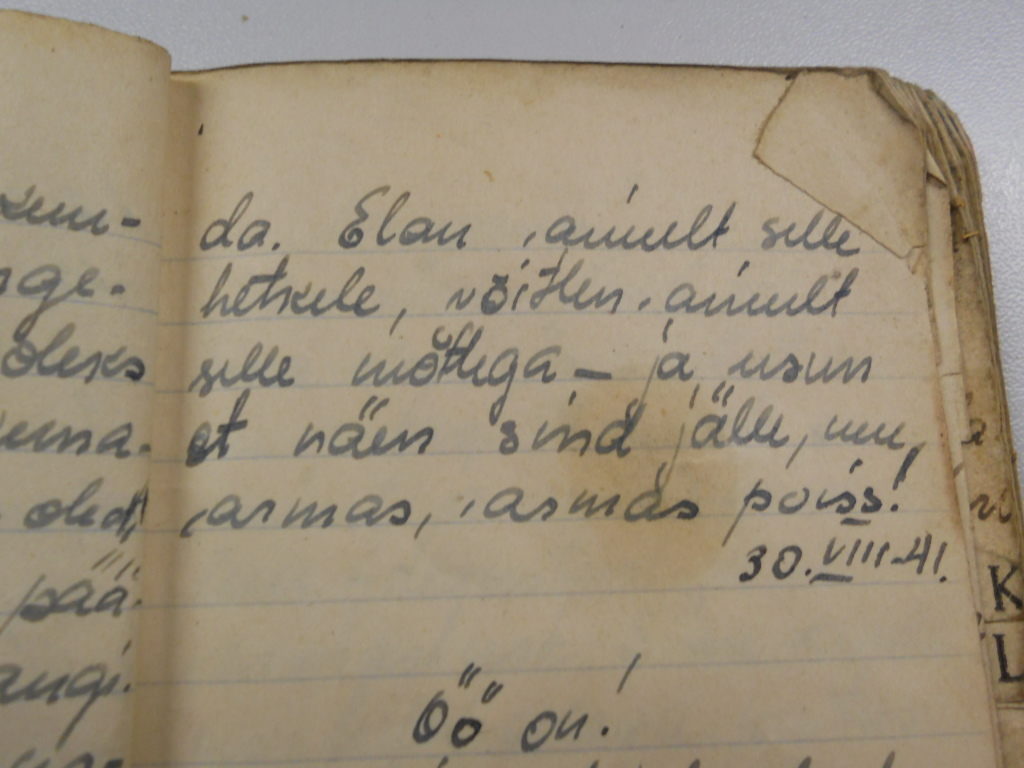 oleks
oled,
pää-
da. Elan ainult selle
hetkele, võitlen ainult
selle mõttega – ja usun
et näen sind jälle, mu,
armas, armas poiss!
30. VIII-41.
Öö on!
K
L